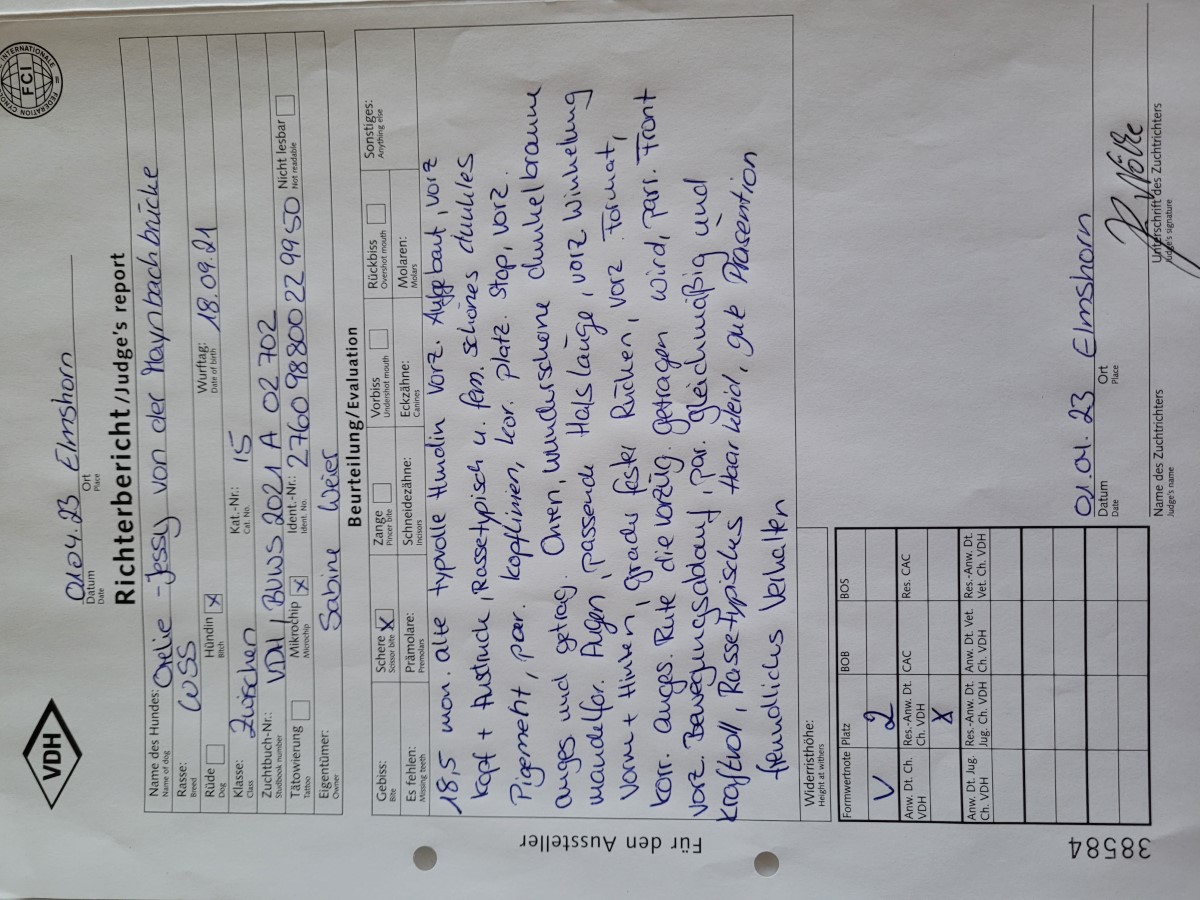 VDH
FEDERATION CYNOLOGIQUE INTERNATIONALE
FCI
01.04.23 Elmshorn
Datum Ort
Date Place
Richterbericht/Judge's report
Name des Hundes: Orelie - Jessy von der Maynbachbrücke
Name of dog
Rasse: WSS Wurftag: 18.09.21
Breed Date of birth
Rüde Hündin X
Dog Bitch
Klasse: Zwischen Kat.-Nr.: 15
Class Cat. No.
Zuchtbuch-Nr.: VDH / BVWS 2021 A 02 702
Studbook number
Tätowierung Mikrochip X Ident.-Nr.: 276098800229950 Nicht lesbar
Tattoo Microchip Ident. No. Not readable
Eigentümer: Sabine Weier
Owner
Beurteilung/Evaluation
Gebiss: Schere X Zange Vorbiss Rückbiss Sonstiges:
Bite Scissor bite Pincer bite Undershot mouth Overshot mouth Anything else
Es fehlen: Prämolare: Schneidezähne: Eckzähne: Molaren:
Missing teeth Premolars Incisors Canines Molars
18,5 mon. alte typvolle Hündin vorz. Aufgebaut, vorz
Kopf + Ausdruck, Rassetypisch u. fem. schönes dunkles
Pigement, paar. Kopflinien, kor. platz. Stop, vorz.
anges und getrag. Ohren, wunderschöne dunkelbraune
mandelfor. Augen, passende Halslänge, vorz Winkelung
vorne + Hinten, grader fester Rücken, vorz. Format,
korr. anges. Rute die vorzüg. getragen wird, parr. Front
vorz. Bewegungsablauf, par. gleichmäßig und
kraftvoll, Rassetypisches Haarkleid, gute Präsention
freundliches Verhalten
Widerristhöhe:
Height at withers
Formwertnote Platz BOB BOS
V 2
Anw. Dt. Ch. VDH Res.-Anw. Dt. Ch. VDH CAC Res. CAC
X
Anw. Dt. Jug. Ch. VDH Res.-Anw. Dt. Jug. Ch. VDH Anw. Dt. Vet. Ch. VDH Res.-Anw. Dt. Vet. Ch. VDH
01.04.23 Elmshorn
Datum Ort
Date Place
Name des Zuchtrichters Unterschrift des Zuchtrichters
Judge's name Judge's signature
Für den Aussteller
38584